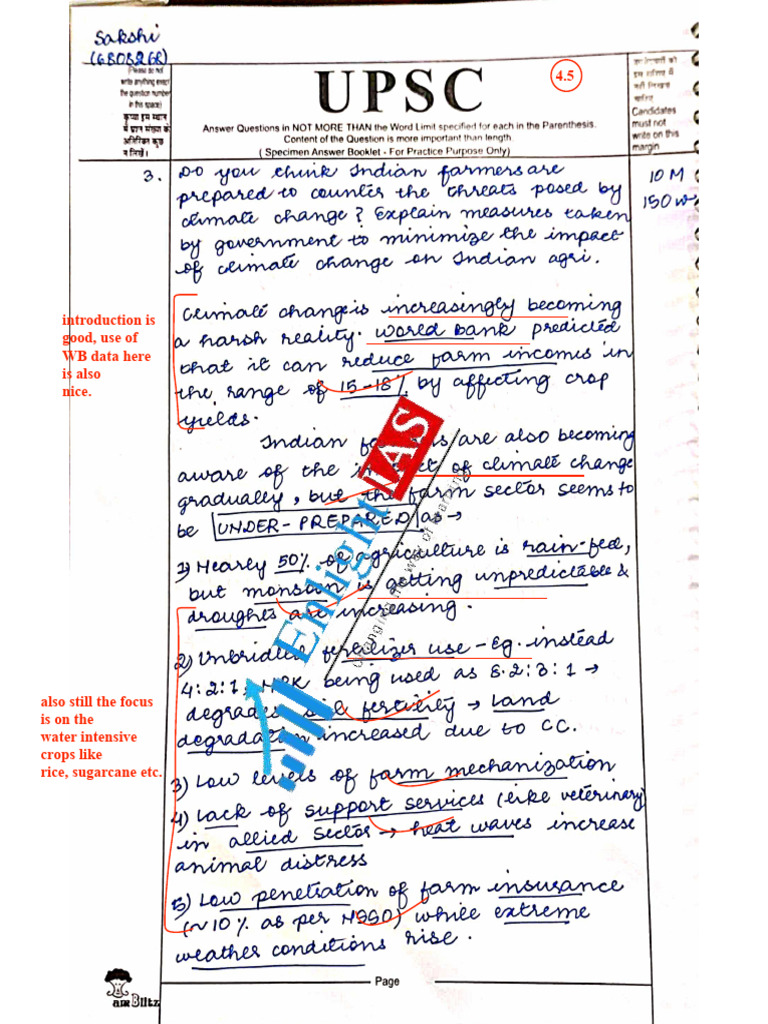 Sakshi
(6808268)
(Please do not
write anything except
the question number
in this space)
कृपया इस स्थान
में प्रश्न संख्या के
अतिरिक्त कुछ
न लिखें।
UPSC
4.5
Answer Questions in NOT MORE THAN the Word Limit specified for each in the Parenthesis.
Content of the Question is more important than length.
( Specimen Answer Booklet - For Practice Purpose Only)
Candidates
must not
write on this
margin
3. Do you think Indian farmers are
prepared to counter the threats posed by
climate change? Explain measures taken
by government to minimize the impact
of climate change on Indian agri.
10 M
150 w
introduction is
good, use of
WB data here
is also
nice.
Climate change is increasingly becoming
a harsh reality. World bank predicted
that it can reduce farm incomes in
the range of 15-18% by affecting crop
yields.
Indian are also becoming
aware of the of climate change
gradually, but the farm sector seems to
be UNDER-PREPARED as →
1) Nearly 50% of agriculture is rain-fed,
but monsoon is getting unpredictable &
droughts are increasing.
2) Unbridled fertilizer use - Eg. instead
4:2:1, NPK being used as 8.2:3:1 →
degrades soil fertility → Land
degradation increased due to CC.
also still the focus
is on the
water intensive
crops like
rice, sugarcane etc.
3) Low levels of farm mechanization
4) Lack of support services (like veterinary)
in allied sector → heat waves increase
animal distress
5) Low penetration of farm insurance
(~10% as per NSSO) while extreme
weather conditions rise.
Enlight IAS
Page
amBlitz